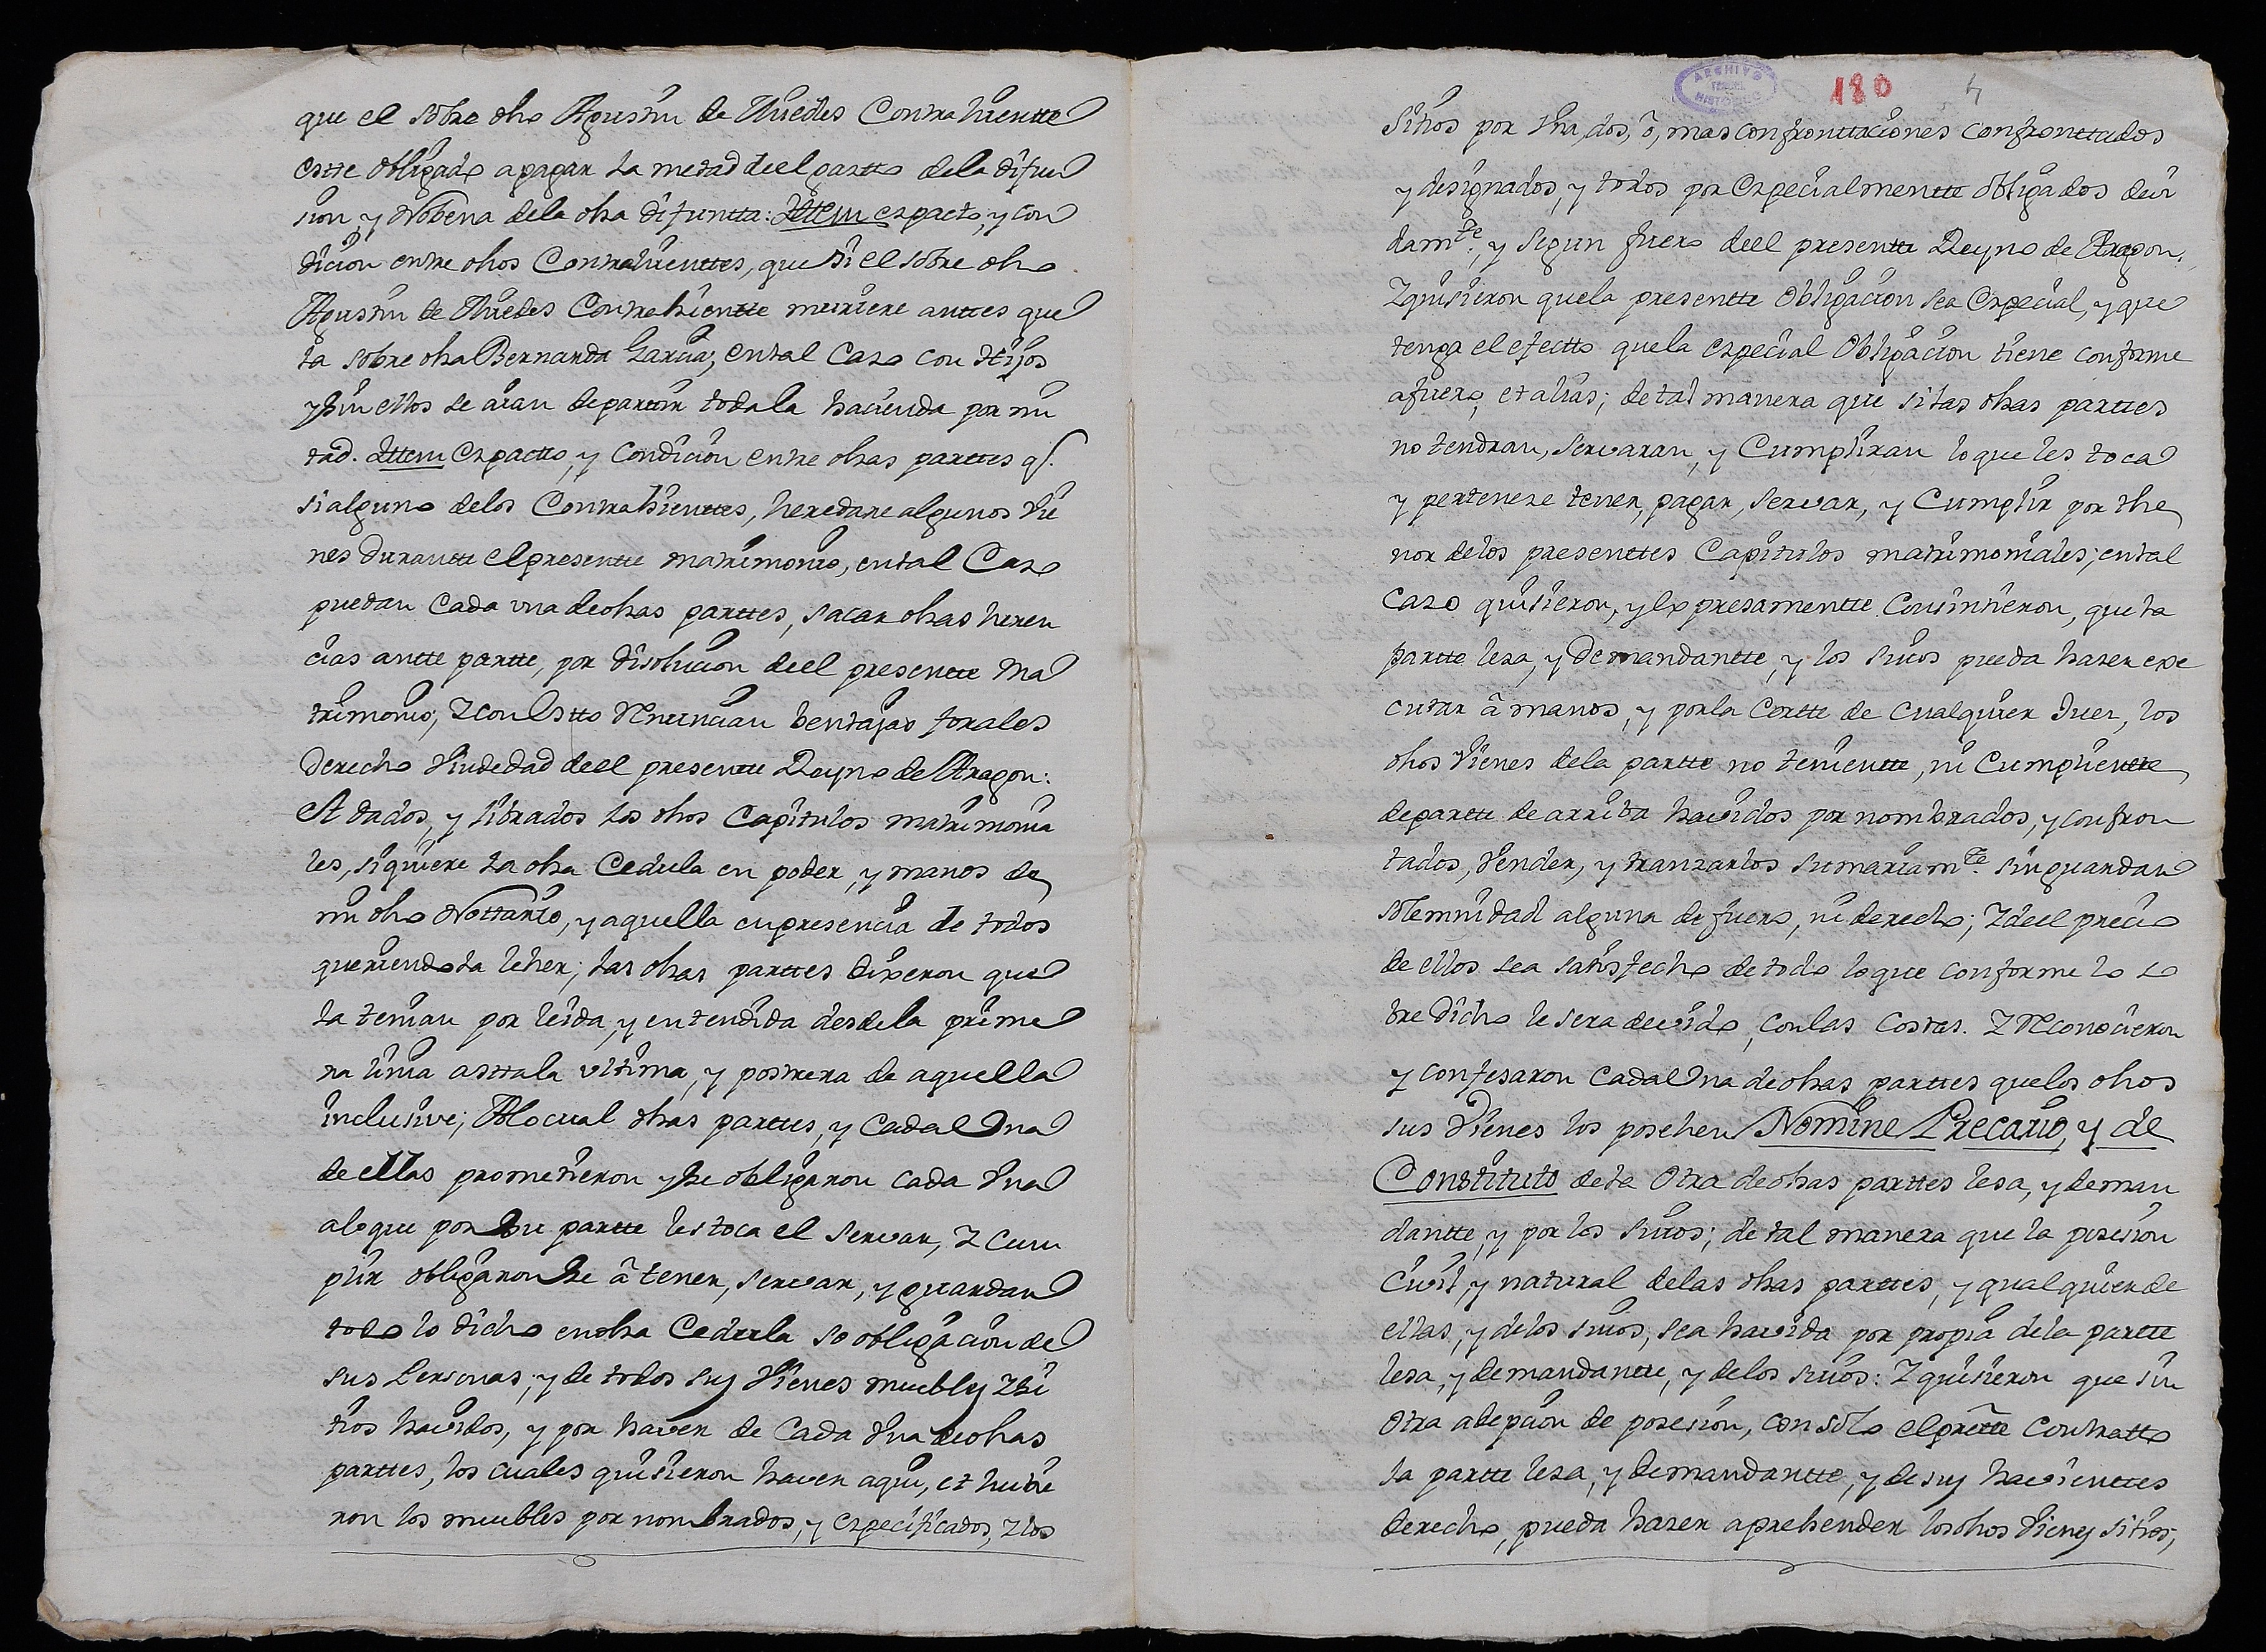 que el sobre dho Agustin de Vuedes Contrahientte
estte obligado a pagar la metad deel gastto dela difun
sion, y Nobena dela dha difuntta: Ittem es pacto, y con
dicion entre dhos Contrahienttes, que si el sobre dho
Agustin de Vuedes Contrahientte muriere anttes que
la sobre dha Bernarda Garcia, en tal Caso con Hijos
y sin ellos se aian de partir toda la hacienda por mi
tad. Ittem es pactto, y Condicion entre dhas parttes q.
si alguno delos Contrahienttes, heredare algunos Vie
nes durantte el presentte Matrimonio, en tal Caso
puedan Cada vna de dhas parttes, sacar dhas heren
cias antte partte, por disolucion deel presentte Ma
trimonio; Y con Estto Renuncian bentajas forales
Derecho Viudedad deel presentte Reyno de Aragon:
Et dados, y librados los dhos Capitulos matrimonia
les, siquiere la dha Cedula en poder, y manos de
mi dho Nottario, y aquella en presencia de todos
queriendola leher; las dhas parttes dixeron que
la tenian por leida, y entendida desde la prime
ra linia astta la vltima, y postrera de aquella
inclusive; A lo cual dhas parttes, y Cada Vna
de ellas prometieron y Se obligaron cada Vna
alo que por Su partte les toca el Servar, Y Cum
plir obligaron Se â tener, servar, y guardar
todo lo dicho en dha Cedula so obligacion de
sus Personas, y de todos sus Vienes muebles Y Si
tios havidos, y por haver de Cada Vna de dhas
parttes, los cuales quisieron haver aqui, et hubie
ron los muebles por nombrados, y especificados, Y los
180
ARCHIVO
HISTORICO
Sitios por Vna, dos, ô, mas confronttaciones confronttados
y designados, y todos por Especialmentte obligados devi
dam.te, y segun fuero deel presentte Reyno de Aragon,
Y quisieron que la presentte Obligacion sea Especial, y que
tenga el efectto que la especial Obligacion tiene conforme
a fuero, et alias; de tal manera que si las dhas parttes
no tendran, Servaran, y Cumpliran lo que les toca
y pertenese tener, pagar, Servar, y Cumplir por the
nor delos presenttes Capitulos matrimoniales; en tal
Caso quisieron, y Expresamentte Consintieron, que la
partte lesa, y Demandantte, y los suios pueda haser exe
cutar â manos, y por la Cortte de Cualquier Juez, los
dhos Vienes dela partte no tenientte, ni Cumplientte
de partte de arriba havidos por nombrados, y confron
tados, Vender, y tranzarlos sumariam.te sin guardar
solemnidad alguna de fuero, ni derecho; Y deel precio
de ellos sea satisfecho de todo lo que conforme lo so
bre dicho le sera devido, con las Costas. Y Reconocieron
y confesaron Cada Vna de dhas parttes que los dhos
sus Vienes los posehen Nomine Precario, y de
Constituto dela Otra de dhas parttes lesa, y deman
dantte, y por los suios; de tal manera que la posesion
Civil, y natural delas dhas parttes, y qualquier de
ellas, y delos suios, sea havida por propia dela partte
lesa, y demandantte, y delos suios: Y quisieron que sin
Otra adepcion de posesion, con solo el prêtte Contratto
la partte lesa, y demandantte, y de sus havienttes
derecho, pueda haser aprehender los dhos Vienes sitios,